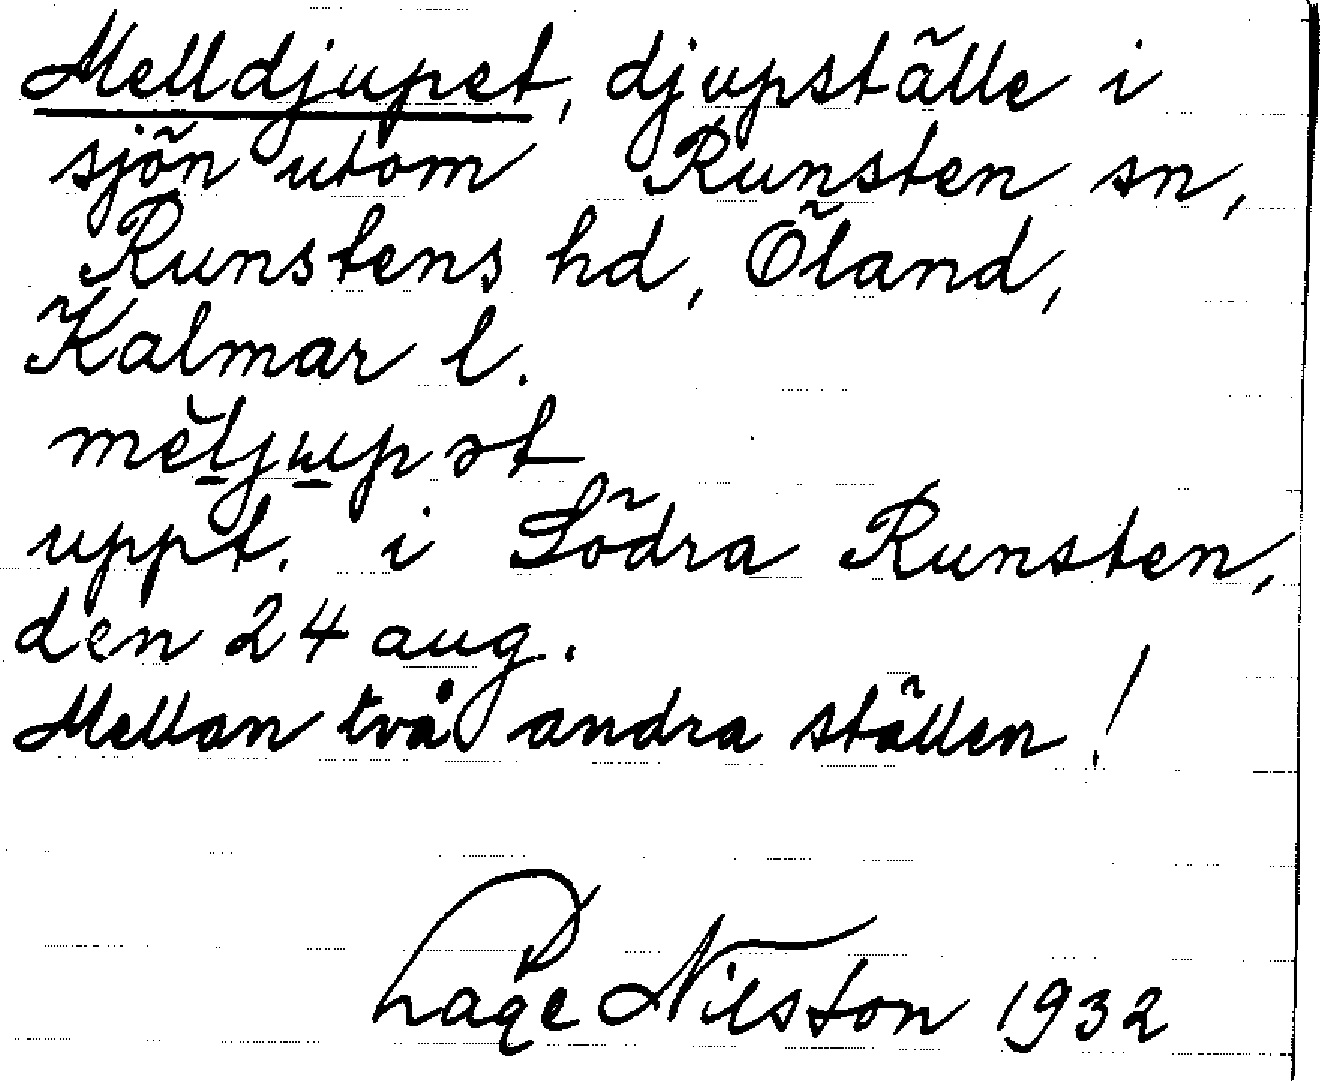 Melldjupet, djupställe i
sjön utom Runsten sn,
Runstens hd, Öland,
Kalmar l.
uppt. i Södra Runsten,
den 24 aug.
Mellan två andra ställen!
Nilsson 1932